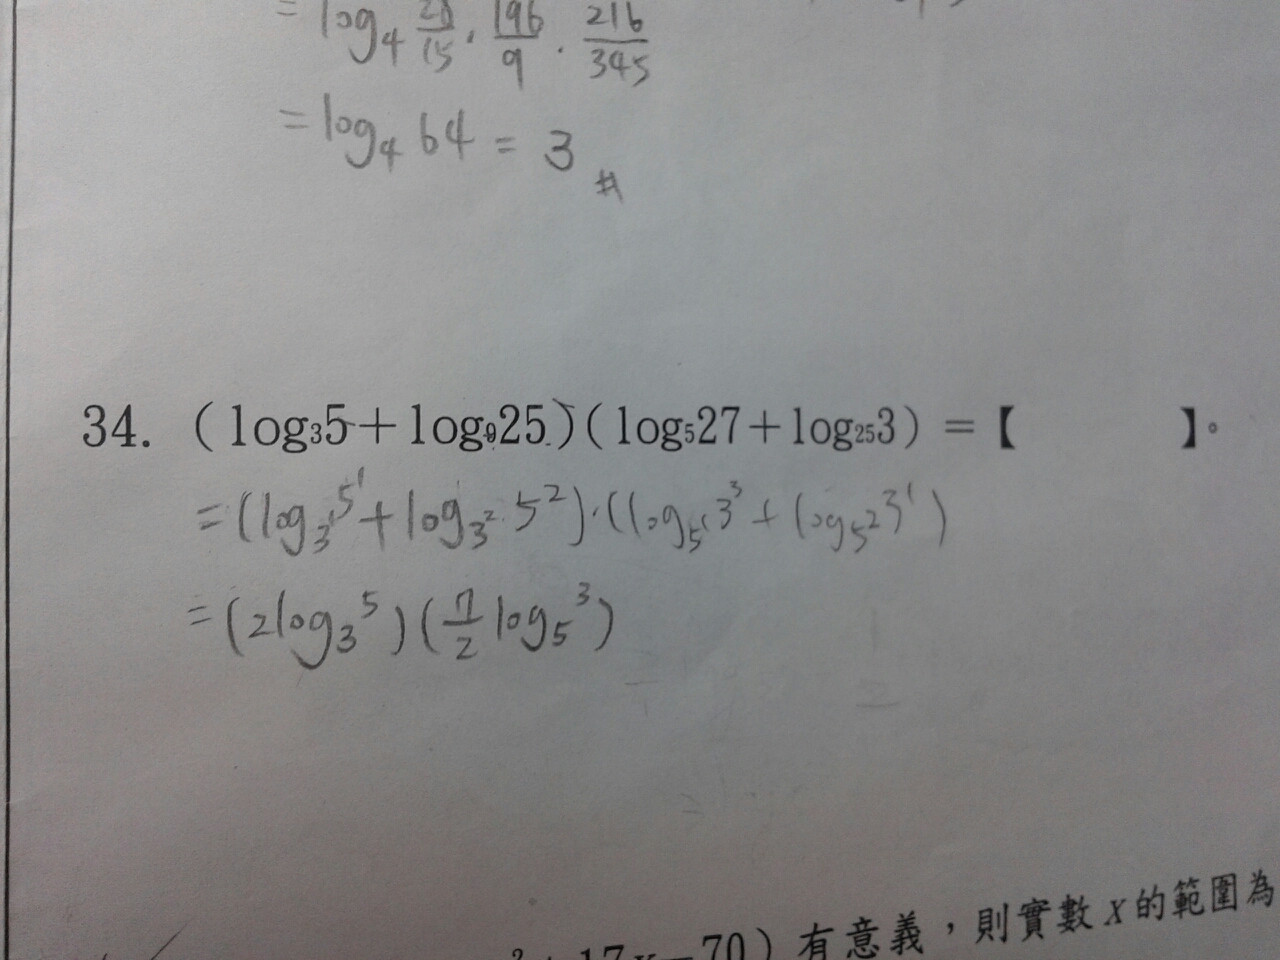 = log₄ 28/15 · 196/9 · 216/345
= log₄ 64 = 3 #
34. (log₃5+log₉25)(log₅27+log₂₅3) =【 】。
= (log₃¹ 5¹ + log₃² 5²)·(log₅¹ 3³ + log₅² 3¹)
= (2log₃ 5)(7/2 log₅ 3)
² + 17x − 70) 有意義，則實數 x 的範圍為